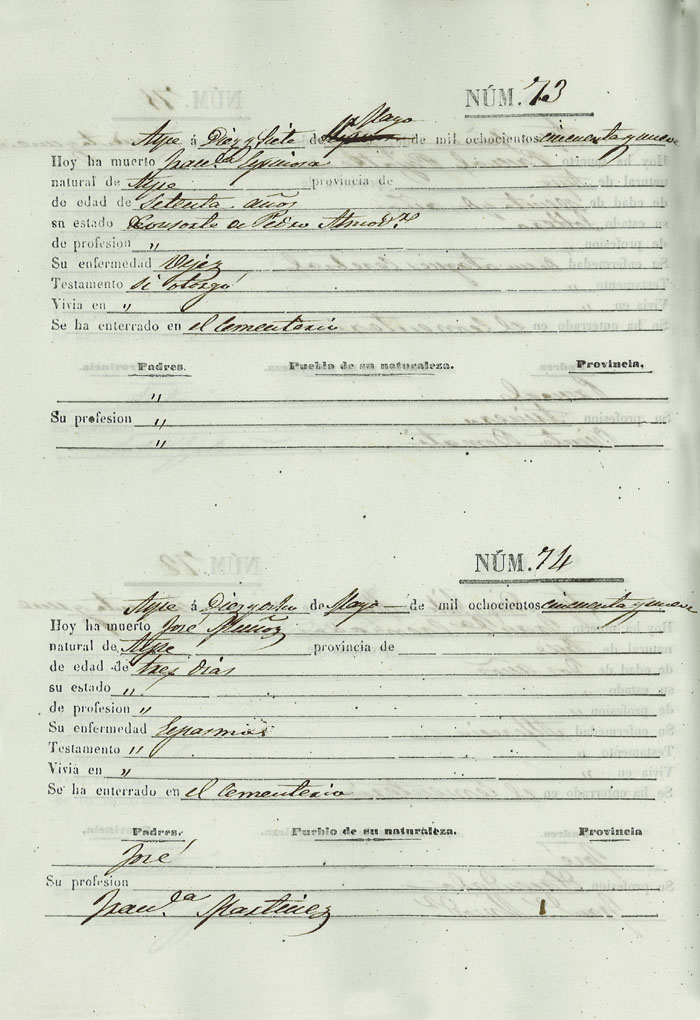 NÚM. 73
Aspe á Diez y Siete de Mayo de mil ochocientos cincuenta y nueve
Hoy ha muerto Fran.ca
natural de Aspe provincia de
de edad de Setenta años
su estado Consorte de Pedro Almod.r
de profesion "
Su enfermedad Vejez
Testamento si otorgó
Vivia en "
Se ha enterrado en el Cementerio
Padres. Pueblo de su naturaleza. Provincia,
"
Su profesion "
"
NÚM. 74
Aspe á Diez y ocho de Mayo de mil ochocientos cincuenta y nueve
Hoy ha muerto José Muñoz
natural de Aspe provincia de
de edad de tres dias
su estado "
de profesion "
Su enfermedad Espasmos
Testamento "
Vivia en "
Se ha enterrado en el Cementerio
Padres. Pueblo de su naturaleza. Provincia
José
Su profesion
Fran.ca Martinez